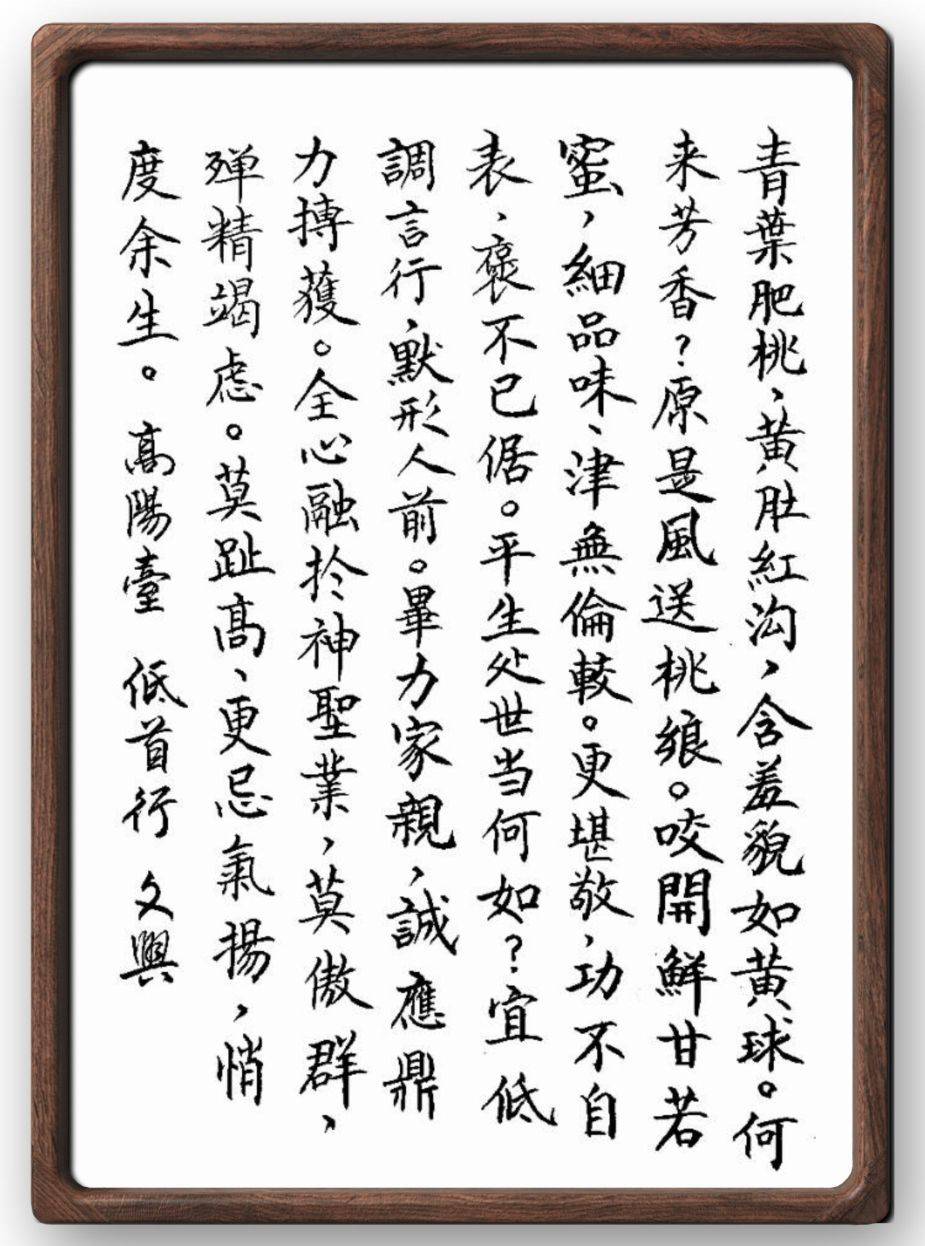 青葉肥桃、黄肚紅沟，含羞貌如黄球。何
来芳香？原是風送桃㾗。咬開鮮甘若
蜜，細品味、津無倫較。更堪敬、功不自
表、褒不已倨。平生处世当何如？宜低
調言行、默形人前。畢力家親，誠應鼎
力搏獲。全心融於神聖業，莫傲群，
殫精竭虑。莫趾高、更忌氣揚，悄
度余生。高陽臺 低首行 文興